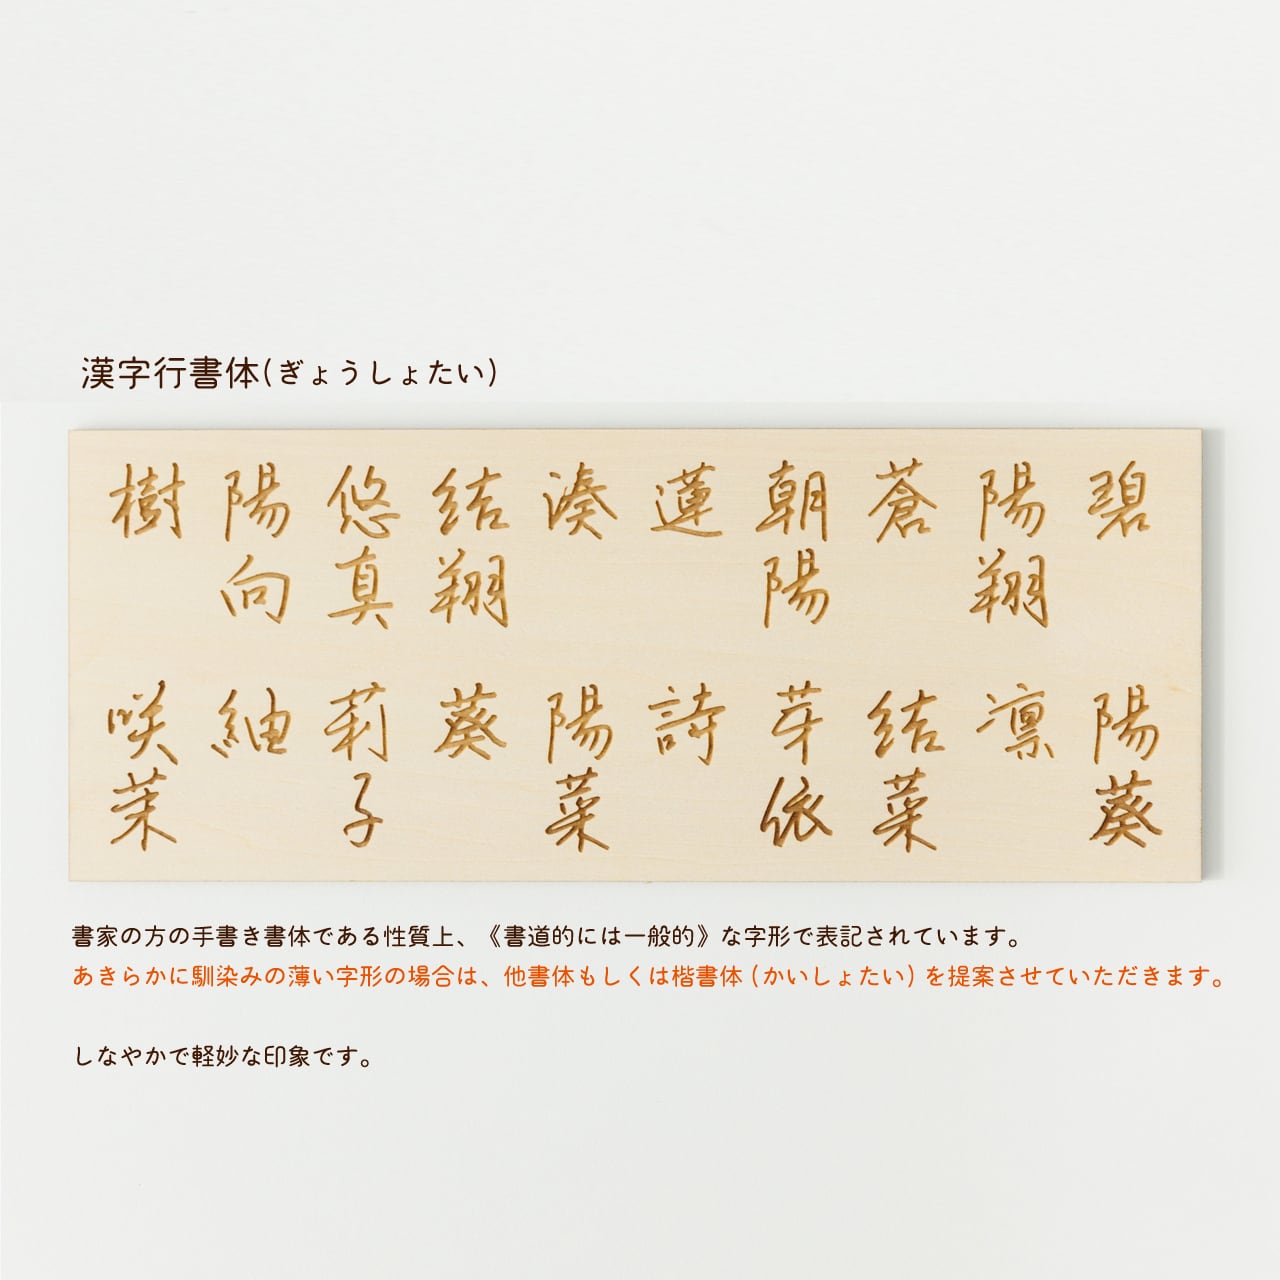 漢字行書体(ぎょうしょたい)
碧
陽翔
蒼
朝陽
蓮
湊
結翔
悠真
陽向
樹
陽葵
凛
結菜
芽依
詩
陽菜
葵
莉子
紬
咲茉
書家の方の手書き書体である性質上、《書道的には一般的》な字形で表記されています。
あきらかに馴染みの薄い字形の場合は、他書体もしくは楷書体(かいしょたい)を提案させていただきます。
しなやかで軽妙な印象です。